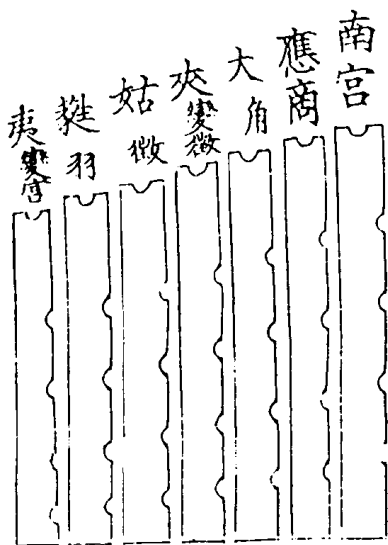 南宫
應商
大角
夾變徵
姑徵
蕤羽
夷變宫